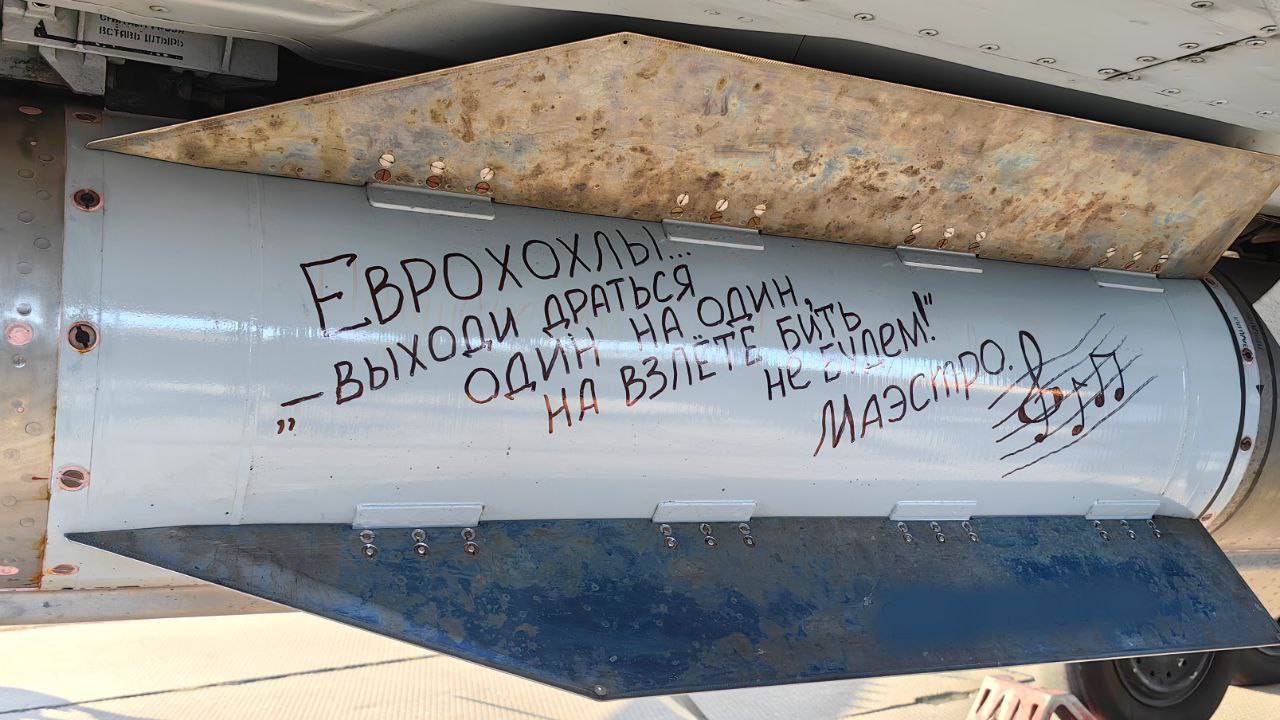 ВСТАВЬ ШТЫРЬ
ЕВРОХОХЛЫ...
„—ВЫХОДИ ДРАТЬСЯ
ОДИН НА ОДИН,
НА ВЗЛЁТЕ БИТЬ
НЕ БУДЕМ!"
МАЭСТРО.